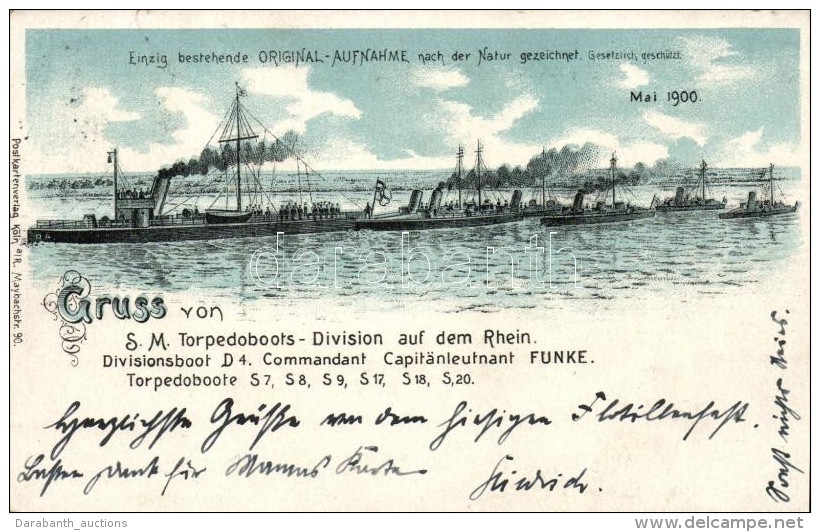 Einzig bestehende ORIGINAL-AUFNAHME nach der Natur gezeichnet. Gesetzlich geschützt.
Mai 1900.
D 4
darabanth
Postkartenverlag Köln a/R., Maybachstr. 90.
Gruss von
S. M. Torpedoboots-Division auf dem Rhein.
Divisionsboot D 4. Commandant Capitänleutnant FUNKE.
Torpedoboote S 7, S 8, S 9, S 17, S 18, S, 20.
Herzlichste Grüße von dem hiesigen Flotillenfest.
Besten Dank für Mamas Karte
Friedrich.
Sonst nichts Neues.
Darabanth_auctions
http://www.delcampe.net